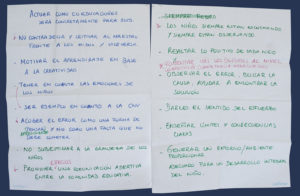 ACTUAR COMO COORDINADORES
SERÁ CONCRETAMENTE PARA SUS:
• NO CONTRADECIR Y LEGITIMAR AL MAESTRO
FRENTE A LOS NIÑOS Y VICEVERSA.
• MOTIVAR EL APRENDIZAJE EN BASE
A LA CREATIVIDAD
• TENER EN CUENTA LAS EMOCIONES DE
LOS NIÑOS
• SER EJEMPLO EN CUANTO A LA CNV
• ACOGER EL ERROR COMO UNA FORMA DE
Y NO COMO UNA FALTA QUE NO
DEBE COMETER
• NO SUBESTIMAR A LA DE LOS
NIÑOS
• PROMOVER UNA COMUNICACIÓN ASERTIVA
ENTRE LA COMUNIDAD EDUCATIVA.
SIEMPRE
• LOS NIÑOS SIEMPRE ESTÁN ESCUCHANDO
Y SIEMPRE ESTÁN OBSERVANDO
• RESALTAR LO POSITIVO DE CADA NIÑO
• LAS DEL NIÑO,
• OBSERVAR EL ERROR, BUSCAR LA
CAUSA, AYUDAR A ENCONTRAR LA
SOLUCIÓN
• DARLES EL SENTIDO DEL ESFUERZO
• ENSEÑAR LÍMITES Y CONSECUENCIAS
CLARAS
• GENERAR UN ESPACIO/AMBIENTE
PROPORCIONAR
ADECUADO PARA UN DESARROLLO INTEGRAL
DEL NIÑO.